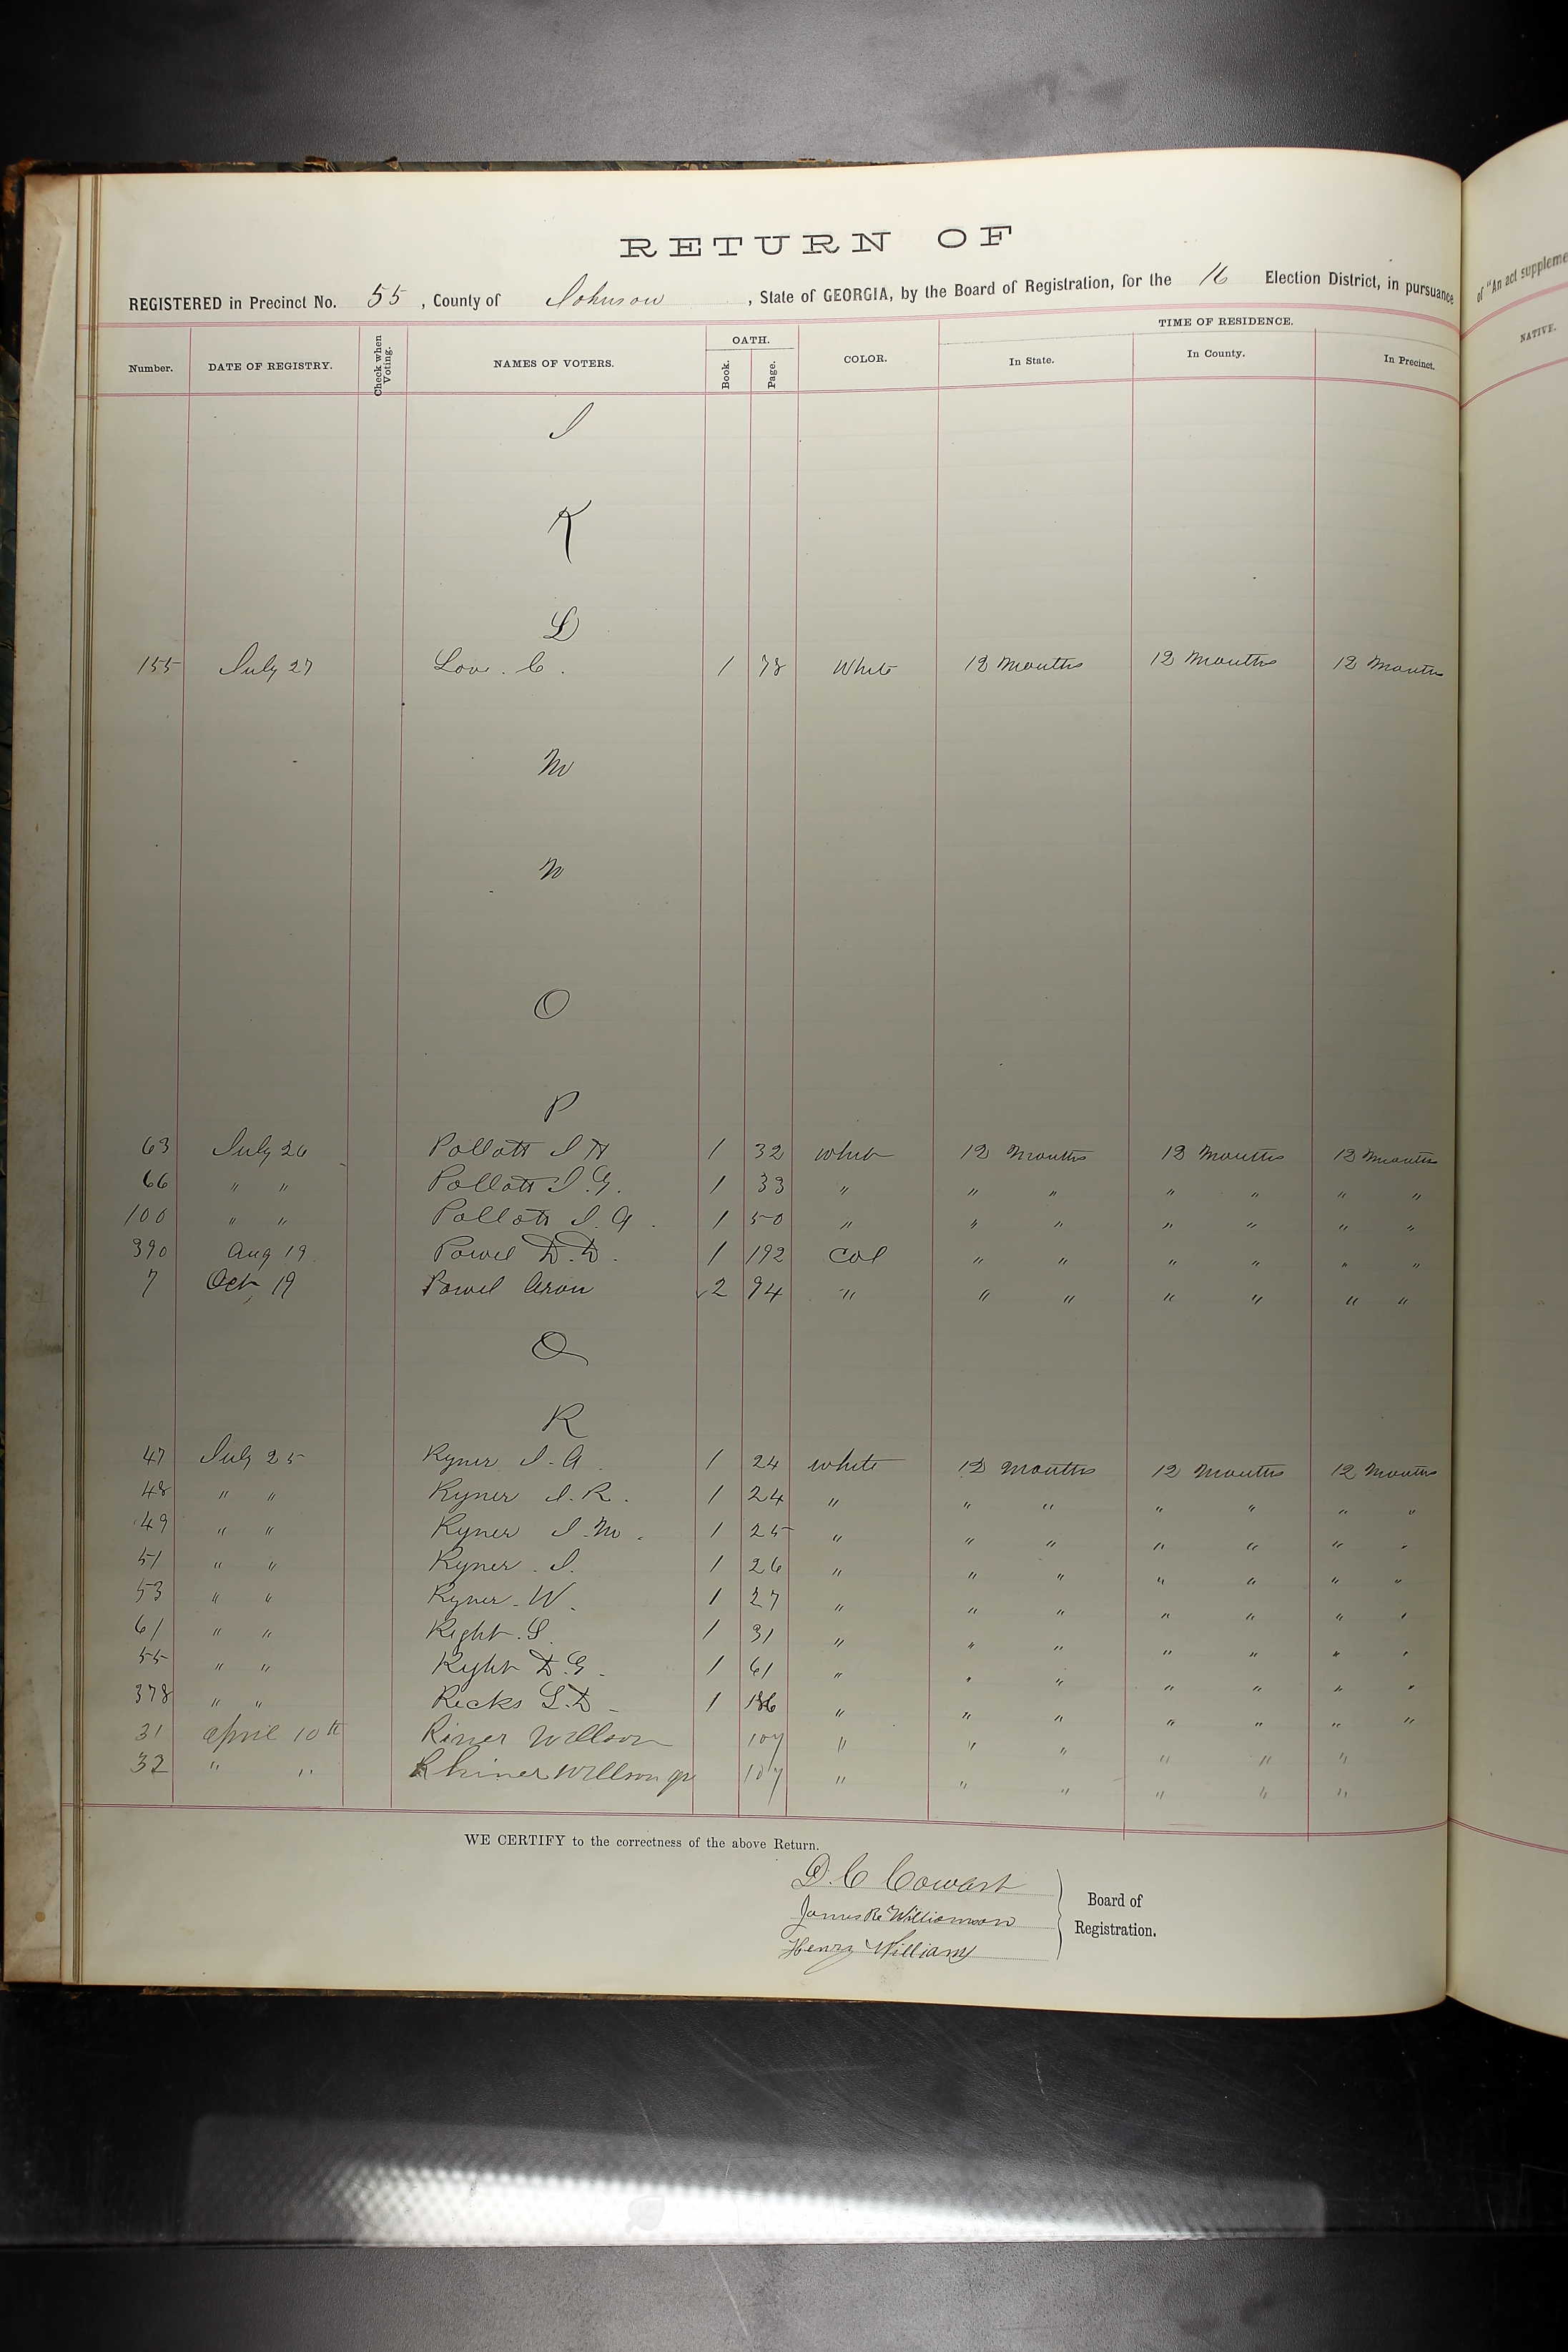 RETURN OF
REGISTERED in Precinct No. 55, County of Johnson, State of GEORGIA, by the Board of Registration, for the 16 Election District, in pursuance
of "An act suppleme
Number. DATE OF REGISTRY. Check when Voting. NAMES OF VOTERS. OATH. Book. Page. COLOR. TIME OF RESIDENCE. In State. In County. In Precinct. NATIVE.
J
K
L
155 July 27 Love. C. 1 78 White 12 Months 12 Months 12 Months
M
N
O
P
63 July 26 Pollott J H 1 32 white 12 Months 12 Months 12 Months
66 " " Pollott J. G. 1 33 " " " " " " "
100 " " Pollott J. A. 1 50 " " " " " " "
390 Aug 19 Powel D. D. 1 192 Col " " " " " "
7 Oct 19 Powel Aron 2 94 " " " " " " "
Q
R
47 July 25 Ryner J. A. 1 24 white 12 Months 12 Months 12 Months
48 " " Ryner J. R. 1 24 " " " " " " "
49 " " Ryner J. M. 1 25 " " " " " " "
51 " " Ryner. J. 1 26 " " " " " " "
53 " " Ryner. W. 1 27 " " " " " " "
61 " " Right. S. 1 31 " " " " " " "
55 " " Right D. G. 1 61 " " " " " " "
378 " " Ricks L. D. 1 186 " " " " " " "
31 April 10th Riner Willson 107 " " " " " "
32 " " Rhiner Willson jr 107 " " " " " "
WE CERTIFY to the correctness of the above Return.
D. C Cowart
James R. Williamson
Henry Williams
Board of
Registration.